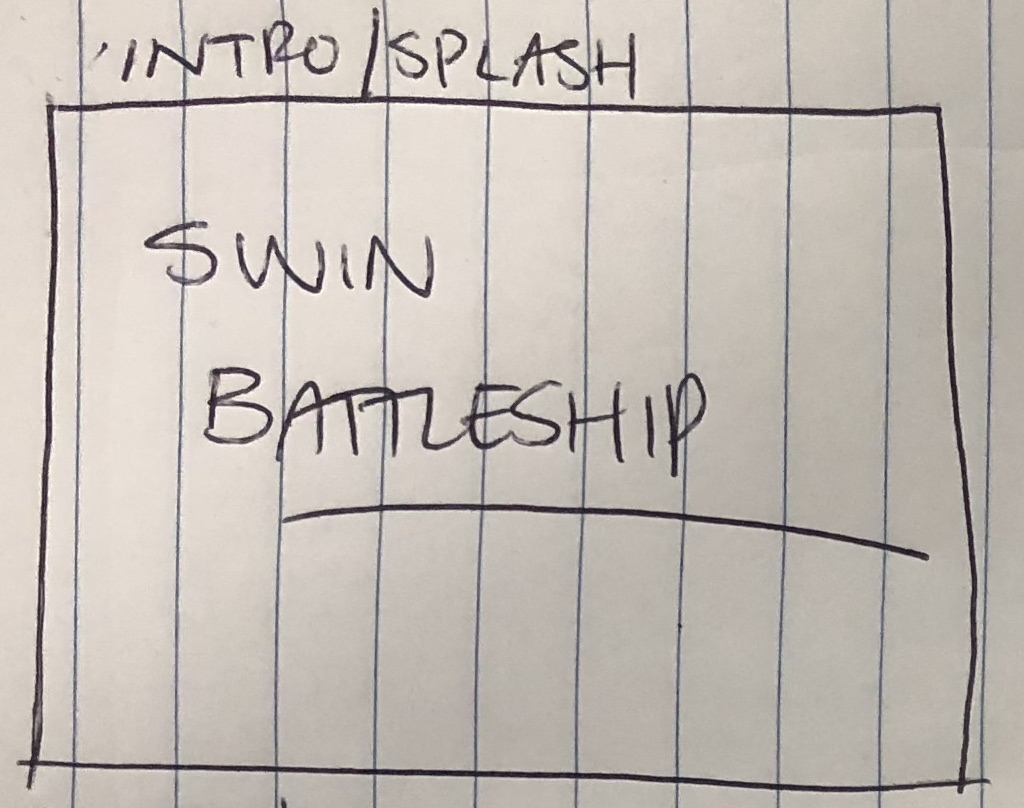 INTRO/SPLASH
SWIN
BATTLESHIP